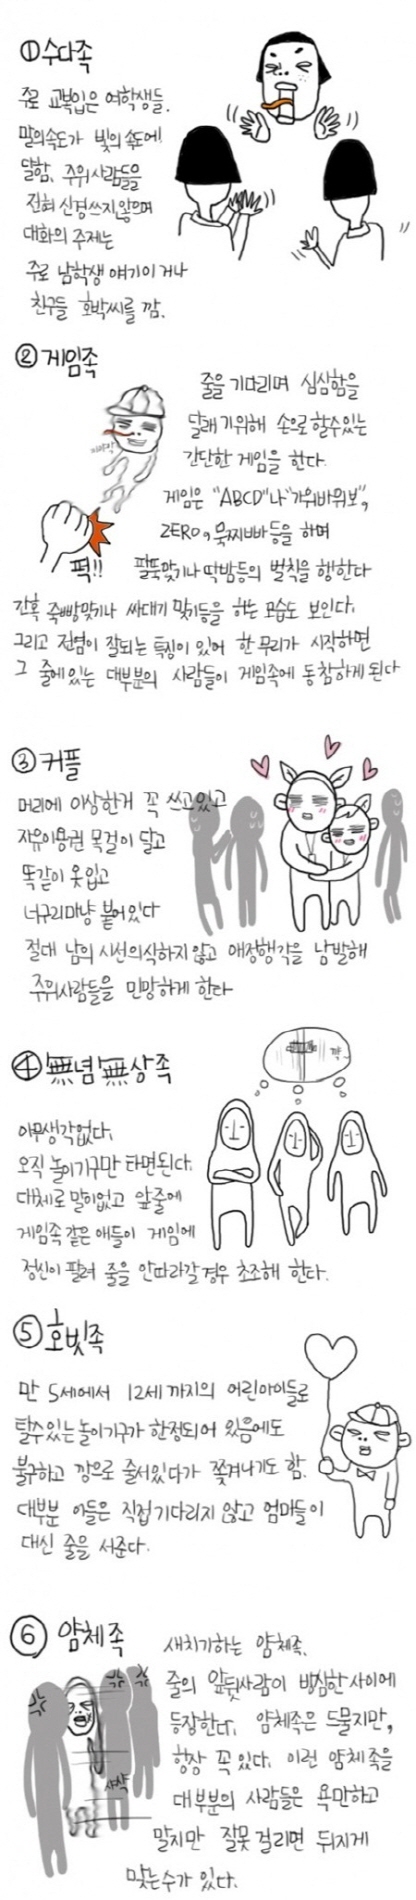 ①수다족
주로 교복입은 여학생들.
말의속도가 빛의 속도에
달함. 주위사람들을
전혀 신경쓰지않으며
대화의 주제는
주로 남학생 얘기이거나
친구들 호박씨를 깜.
② 게임족
줄을 기다리며 심심함을
달래기위해 손으로 할수있는
간단한 게임을 한다.
게임은 "ABCD"나 "가위바위보",
ZERO, 묵찌빠 등을 하며
퍽!! 팔뚝맞기나 딱밤등의 벌칙을 행한다
간혹 죽빵맞기나 싸대기 맞기등을 하는 모습도 보인다.
그리고 전염이 잘되는 특징이 있어 한 무리가 시작하면
그 줄에있는 대부분의 사람들이 게임족에 동참하게 된다
③ 커플
머리에 이상한거 꼭 쓰고있고
자유이용권 목걸이 달고
똑같이 옷입고
너구리마냥 붙어있다
절대 남의 시선의식하지 않고 애정행각을 남발해
주위사람들을 민망하게 한다
④ 無념無상족
아무생각없다.
오직 놀이기구만 타면된다.
대체로 말이없고 앞줄에
게임족 같은 애들이 게임에
정신이 팔려 줄을 안따라갈 경우 초조해 한다.
⑤ 호빗족
만 5세에서 12세 까지의 어린아이들로
탈수있는 놀이기구가 한정되어 있음에도
불구하고 깡으로 줄서있다가 쫓겨나기도 함.
대부분 아들은 직접 기다리지 않고 엄마들이
대신 줄을 서준다.
⑥ 얌체족
새치기하는 얌체족.
줄의 앞뒷사람이 방심한 사이에
등장한다. 얌체족은 드물지만,
항상 꼭 있다. 이런 얌체족을
샤샥
대부분의 사람들은 욕만하고
말지만 잘못 걸리면 뒤지게
맞는수가 있다.